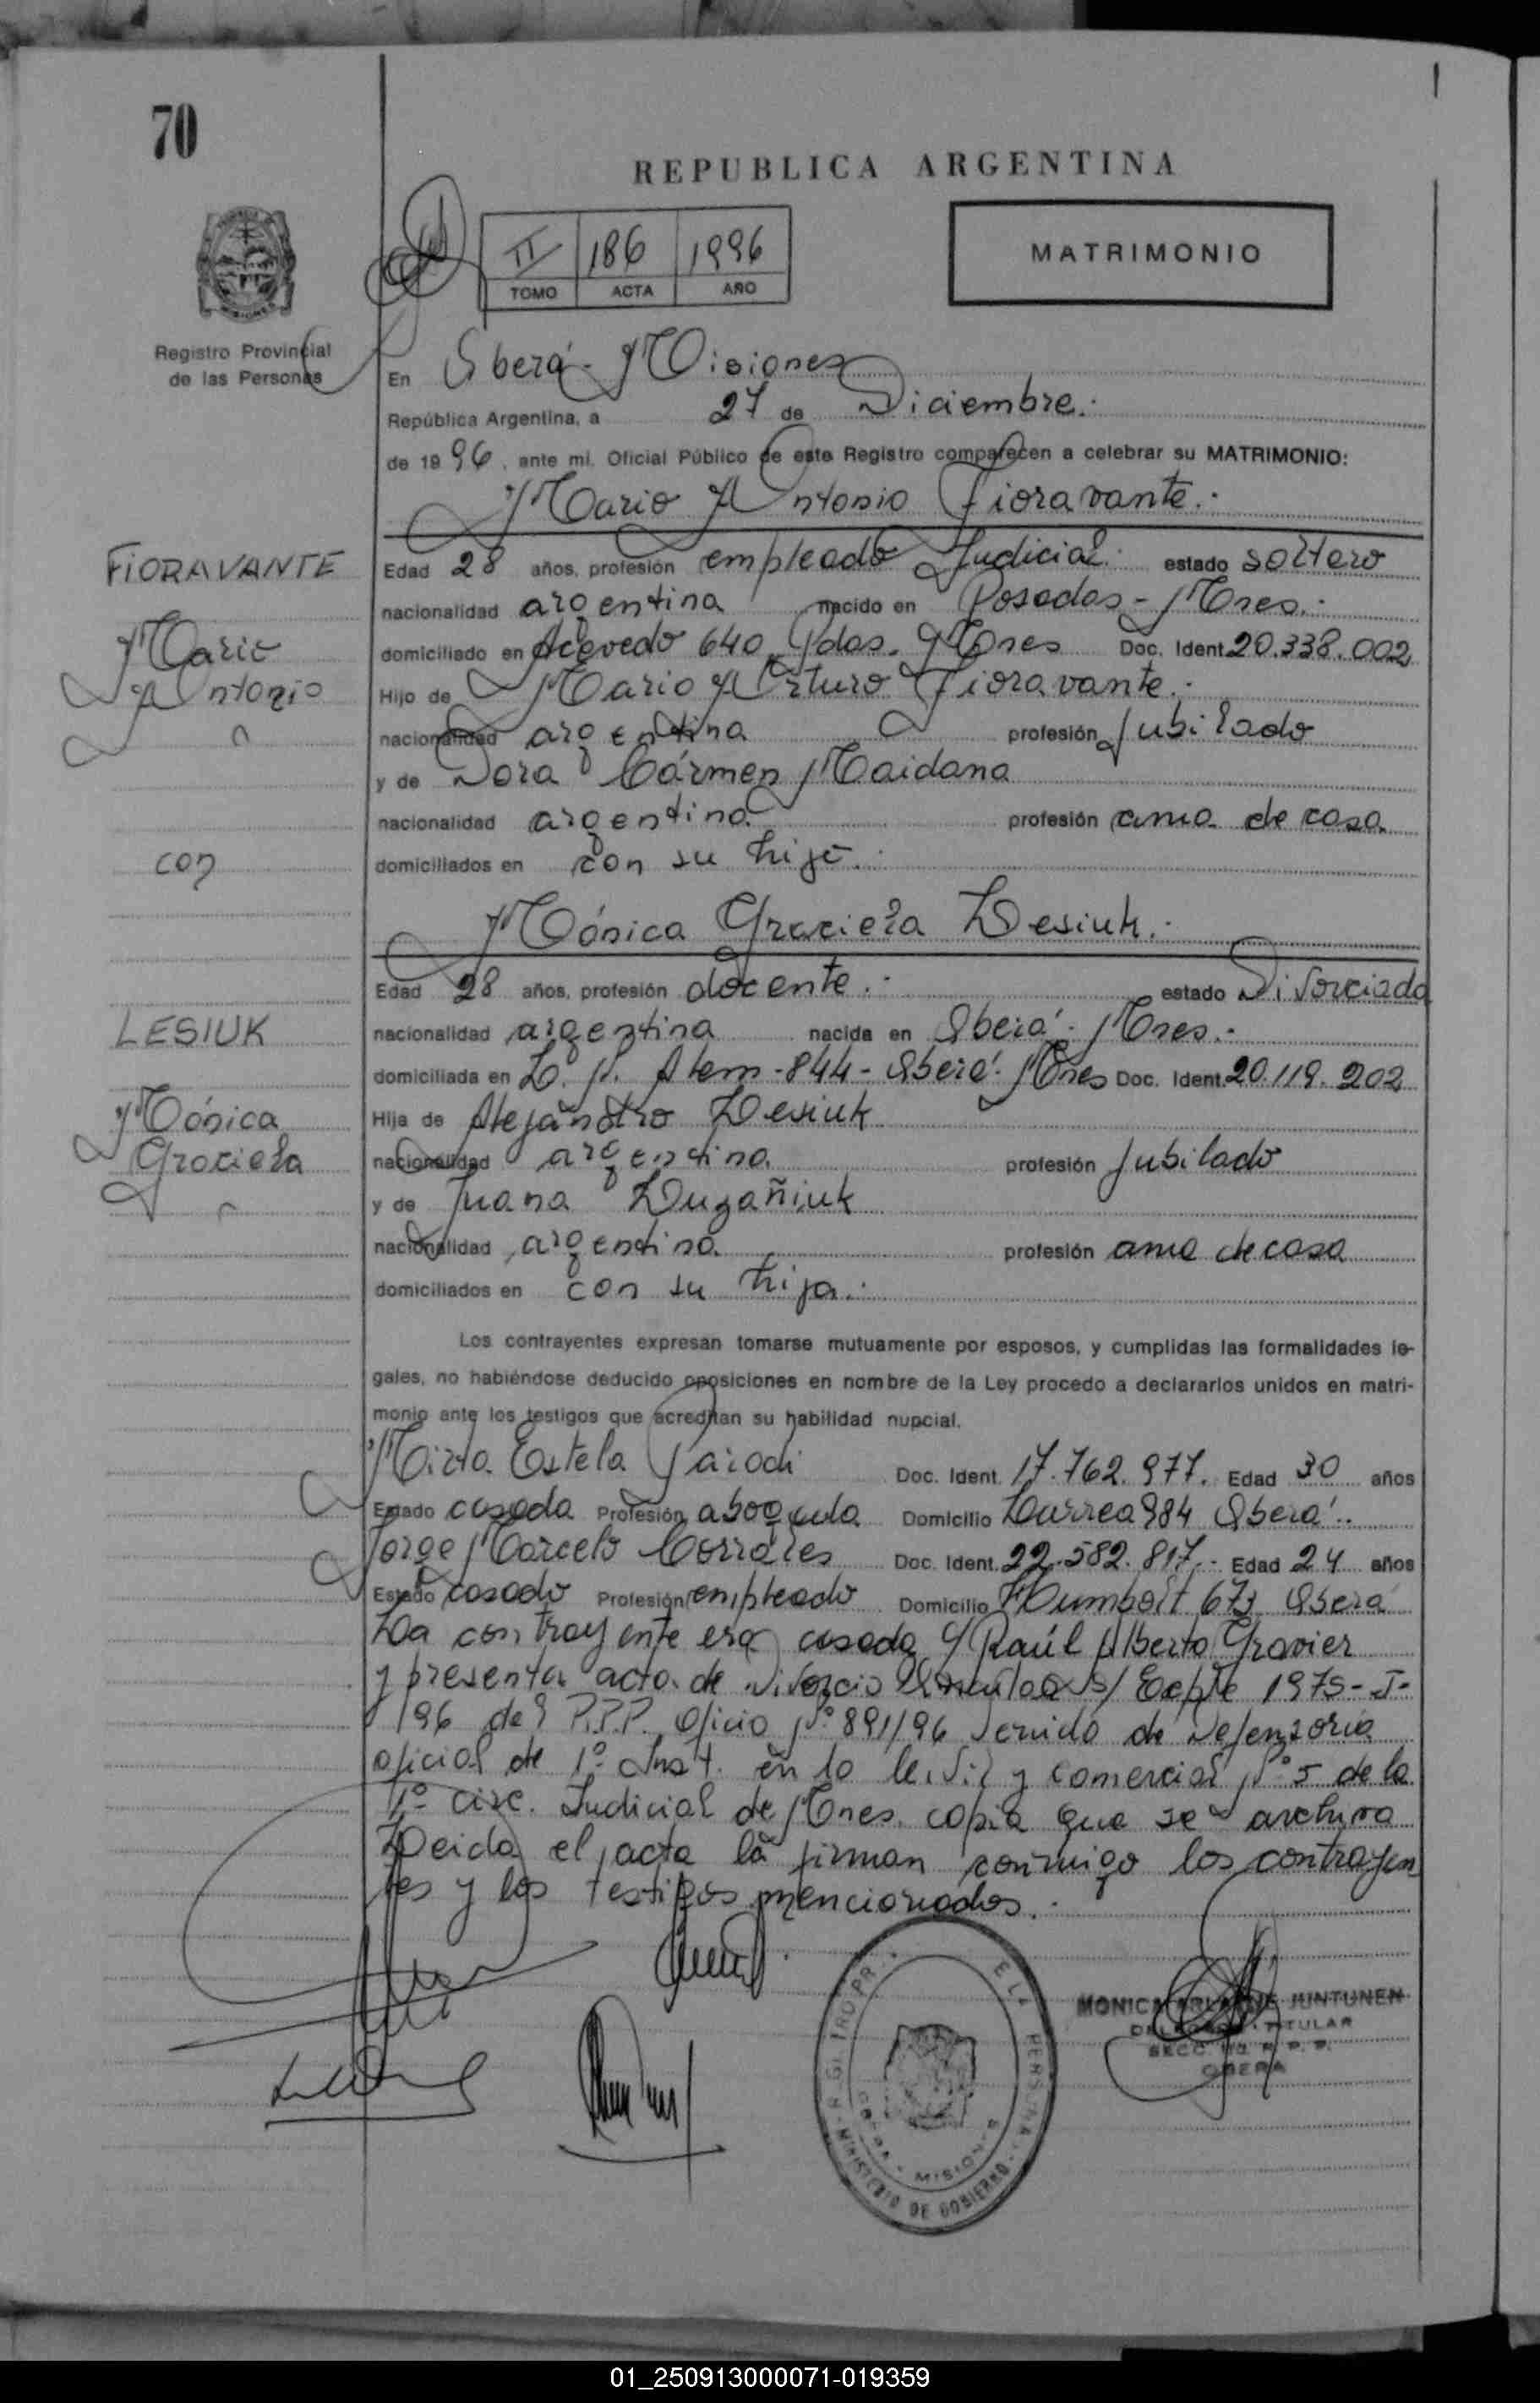 70
REPUBLICA ARGENTINA
II 186 1996
TOMO ACTA AÑO
MATRIMONIO
Registro Provincial
de las Personas
En Oberá - Misiones
República Argentina, a 27 de Diciembre.-
de 1996, ante mi, Oficial Público de este Registro comparecen a celebrar su MATRIMONIO:
Mario Antonio Fioravante.-
FIORAVANTE
Mario
Antonio
con
LESIUK
Mónica
Graciela
Edad 28 años, profesión empleado Judicial. estado soltero
nacionalidad argentina nacido en Posadas - Mnes.-
domiciliado en Acevedo 640 Pdas. Mnes Doc. Ident 20.338.002
Hijo de Mario Arturo Fioravante.-
nacionalidad argentina profesión Jubilado
y de Dora Cármen Maidana
nacionalidad argentina profesión ama de casa
domiciliados en con su hijo.-
Mónica Graciela Lesiuk.-
Edad 28 años, profesión docente.- estado Divorciada
nacionalidad argentina nacida en Oberá - Mnes.-
domiciliada en L. N. Alem - 844 - Oberá - Mnes Doc. Ident. 20.119.202
Hija de Alejandro Lesiuk
nacionalidad argentina profesión Jubilado
y de Juana Luzañiuk
nacionalidad argentina profesión ama de casa
domiciliados en con su hija.-
Los contrayentes expresan tomarse mutuamente por esposos, y cumplidas las formalidades le-
gales, no habiéndose deducido oposiciones en nombre de la Ley procedo a declararlos unidos en matri-
monio ante los testigos que acreditan su habilidad nupcial.
Mirta Estela Parodi Doc. Ident. 17.762.977. Edad 30 años
Estado casada Profesión abogada Domicilio Larrea 984 Oberá.-
Jorge Marcelo Corrales Doc. Ident. 22.582.817.- Edad 24 años
Estado casado Profesión empleado Domicilio Humbolt 673 Oberá
La contrayente era casada c/ Raúl Alberto Gravier
y presenta acta de Divorcio Vincular s/ Expte 1975-J-
196 del P.P.P. Oficio Nº 891/96 venido de Defensoria
oficial de 1º Inst. en lo Civil y comercial Nº 5 de la
1º circ. Judicial de Mnes. copia que se archiva
Leida el acta la firman conmigo los contrayen
tes y los testigos mencionados.-
MONICA JUNTUNEN
TITULAR
SECC. R. P. P.
OBERA
OBERA - MISIONES
MINISTERIO DE GOBIERNO
01_250913000071-019359